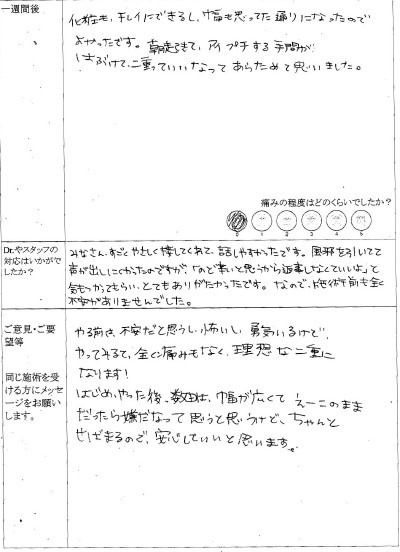 一週間後
化粧も、キレイにできるし、幅も思ってた通りになったので
よかったです。朝起きて、アイプチする手間が
はぶけて、二重っていいなってあらためて思いました。
痛みの程度はどのくらいでしたか？
0 1 2 3 4 5
Dr.やスタッフの
対応はいかがで
したか？
みなさん、すごくやさしく接してくれて、話しやすかったです。風邪を引いてて
声が出しにくかったのですが、「のど痛いと思うから返事しなくていいよ」と
気もつかってもらい、とてもありがたかったです。なので、施術前も全く
不安がありませんでした。
ご意見・ご要
望等
同じ施術を受
ける方にメッセ
ージをお願い
します。
やる前は、不安だと思うし、怖いし、勇気いるけど、
やってみるて、全く痛みもなく、理想な二重に
なります！
はじめ、やった後、数日は、幅が広くて えーこのまま
だったら嫌だなって思うと思うけど、ちゃんと
せばまるので、安心していいと思います。